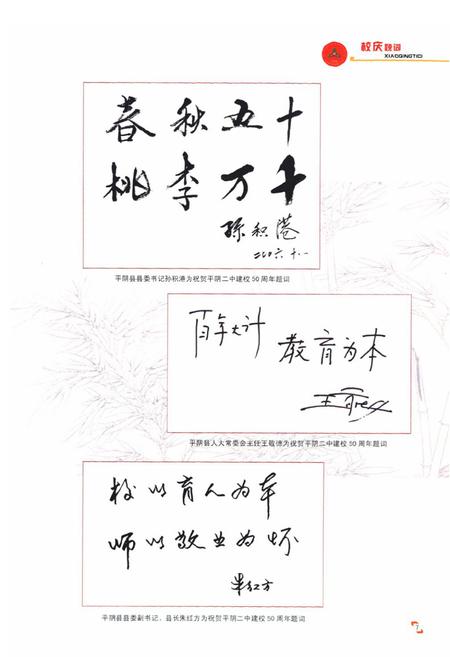 校庆题词
XIAOQINGTICI
春秋五十
桃李万千
孙积港
二〇〇六.十.一
平阴县县委书记孙积港为祝贺平阴二中建校50周年题词
百年大计 教育为本
平阴县人大常委会主任王敬德为祝贺平阴二中建校50周年题词
校以育人为本
师以敬业为怀
朱红方
平阴县县委副书记、县长朱红方为祝贺平阴二中建校50周年题词
7